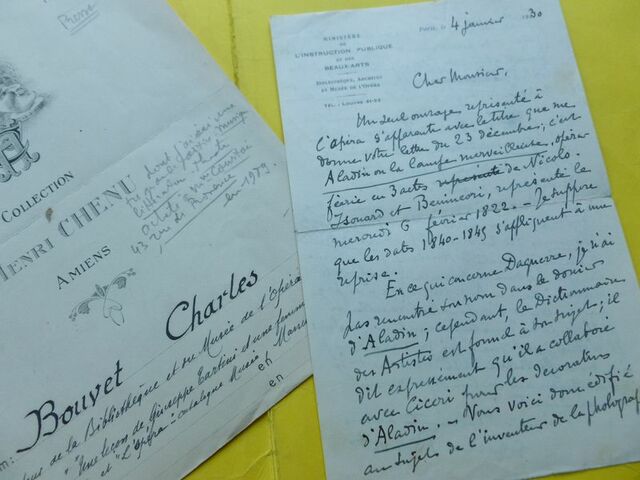 Presse
COLLECTION
HENRI CHENU
AMIENS
dont j'ai
Musique
littérature, théâtre
43 rue de Provence
en 1979
Bouvet Charles
de la Bibliothèque et du Musée de l'Opéra
"Une leçon de Giuseppe Tartini et une femme
et "L'Opéra" - catalogue Musée, Manus
et
en
MINISTÈRE
DE
L'INSTRUCTION PUBLIQUE
ET DES
BEAUX-ARTS
BIBLIOTHÈQUE, ARCHIVES
ET MUSÉE DE L'OPÉRA
TÉL. : LOUVRE
Paris, le 4 janvier 1930
Cher Monsieur,
Un seul ouvrage représenté à
l'Opéra s'apparente avec le titre que me
donne votre lettre du 23 décembre; c'est
Aladin ou la lampe merveilleuse, opéra
féerie en 3 actes représenté de Nicolo-
Isouard et Benincori, représenté le
mercredi 6 février 1822. - Je suppose
que les dates 1840-1845 s'appliquent à une
reprise.
En ce qui concerne Daguerre, je n'ai
pas rencontré son nom dans le dossier
d'Aladin; cependant, le Dictionnaire
des Artistes est formel à son sujet; il
dit expressément qu'il a collaboré
avec Cicéri pour les décorations
d'Aladin. - Vous voici donc édifié
au sujet de l'inventeur de la photograp